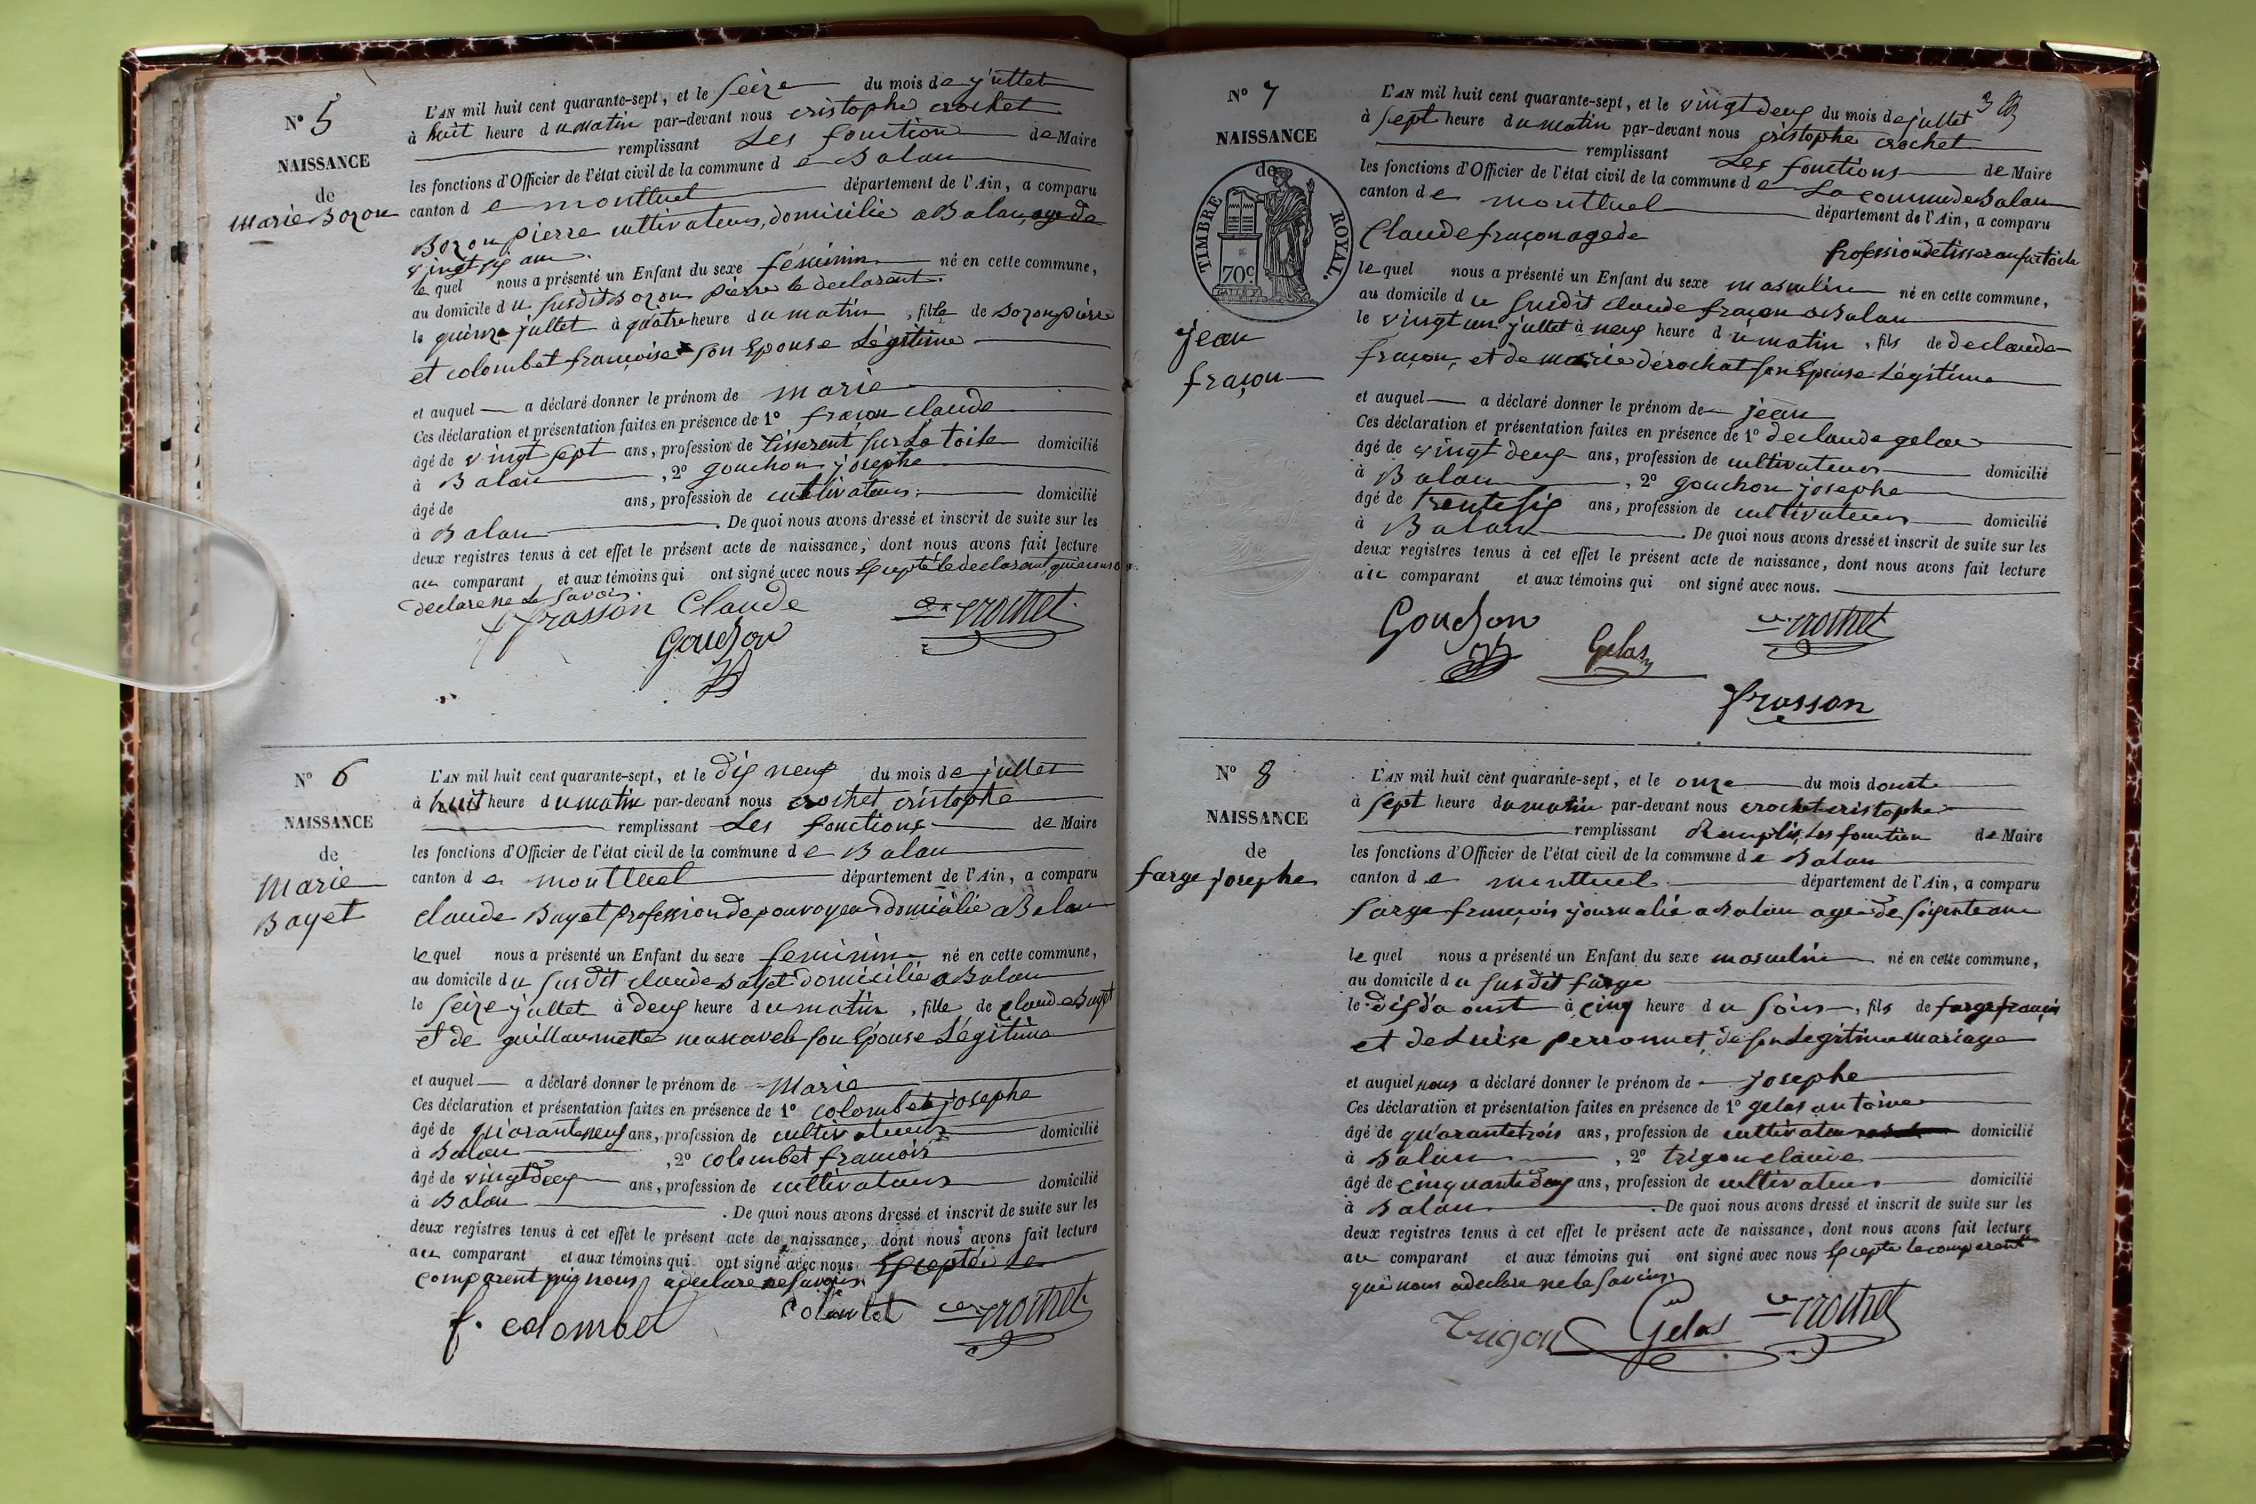 N° 5
NAISSANCE
de
Marie Bozon
L'AN mil huit cent quarante-sept, et le seize du mois de juillet
à huit heure du matin par-devant nous cristophe crochet
remplissant Les fonction de Maire
les fonctions d'Officier de l'état civil de la commune de Balan
canton de montluel département de l'Ain, a comparu
Bozon pierre cultivateur, domicilié a Balan, age de
vingt six ans
le quel nous a présenté un Enfant du sexe féminin né en cette commune,
au domicile du susdit Bozon pierre le declarant.
le quinze juillet à quatre heure du matin, fille de Bozon pierre
et colombet françoise son Epouse Légitime
et auquel a déclaré donner le prénom de marie
Ces déclaration et présentation faites en présence de 1° fraçon claude
âgé de vingt sept ans, profession de tisserent sur la toile domicilié
à Balan, 2° gouchon josephe
âgé de ans, profession de cultivateur domicilié
à Balan. De quoi nous avons dressé et inscrit de suite sur les
deux registres tenus à cet effet le présent acte de naissance, dont nous avons fait lecture
au comparant et aux témoins qui ont signé avec nous Excepté le declarant qui a nous a
declare ne le savoir.
frasson Claude
Gouchon
crochet
N° 6
NAISSANCE
de
Marie
Bayet
L'AN mil huit cent quarante-sept, et le dix neuf du mois de juillet
à huit heure du matin par-devant nous crochet cristophe
remplissant Les fonctions de Maire
les fonctions d'Officier de l'état civil de la commune de Balan
canton de montluel département de l'Ain, a comparu
claude Bayet profession de domicilié a Balan
le quel nous a présenté un Enfant du sexe feminin né en cette commune,
au domicile du susdit claude Bayet domicilié a Balan
le seize juillet à deux heure du matin, fille de claude Bayet
et de guillaumette son Epouse Légitime
et auquel a déclaré donner le prénom de Marie
Ces déclaration et présentation faites en présence de 1° colombet josephe
âgé de quarante neuf ans, profession de cultivateur domicilié
à Balan, 2° colombet francois
âgé de vingt deux ans, profession de cultivateur domicilié
à Balan. De quoi nous avons dressé et inscrit de suite sur les
deux registres tenus à cet effet le présent acte de naissance, dont nous avons fait lecture
au comparant et aux témoins qui ont signé avec nous Excepté le
comparent qui nous a declare ne savoir.
f. colombet
colombet
crochet
N° 7
NAISSANCE
de
TIMBRE ROYAL.
70c
jean
fraçon
L'AN mil huit cent quarante-sept, et le vingt deux du mois de juillet
à sept heure du matin par-devant nous cristophe crochet
remplissant Les fonctions de Maire
les fonctions d'Officier de l'état civil de la commune de La commune de Balan
canton de montluel département de l'Ain, a comparu
Claude fraçon age de
profession de tisseran sur toile
le quel nous a présenté un Enfant du sexe masculin né en cette commune,
au domicile du susdit claude fraçon a Balan
le vingt un juillet à neuf heure du matin, fils de de claude
fraçon, et de marie dérochat son Epouse Légitime
et auquel a déclaré donner le prénom de jean
Ces déclaration et présentation faites en présence de 1° de claude gelas
âgé de vingt deux ans, profession de cultivateur domicilié
à Balan, 2° gouchon josephe
âgé de trente six ans, profession de cultivateur domicilié
à Balan. De quoi nous avons dressé et inscrit de suite sur les
deux registres tenus à cet effet le présent acte de naissance, dont nous avons fait lecture
au comparant et aux témoins qui ont signé avec nous.
Gouchon
Gelas
crochet
frasson
N° 8
NAISSANCE
de
farge josephe
L'AN mil huit cent quarante-sept, et le onze du mois d'oust
à sept heure du matin par-devant nous crochet cristophe
remplissant Remplis Les fonction de Maire
les fonctions d'Officier de l'état civil de la commune de Balan
canton de montluel département de l'Ain, a comparu
farge françois journalié a Balan age de soixante ans
le quel nous a présenté un Enfant du sexe masculin né en cette commune,
au domicile du susdit farge
le dix d'a oust à cinq heure du soir, fils de farge françois
et de Luise perronnet, de son Legitime mariage
et auquel nous a déclaré donner le prénom de josephe
Ces déclaration et présentation faites en présence de 1° gelas antoine
âgé de quarante trois ans, profession de cultivateur domicilié
à Balan, 2° trigon claude
âgé de cinquante deux ans, profession de cultivateur domicilié
à Balan. De quoi nous avons dressé et inscrit de suite sur les
deux registres tenus à cet effet le présent acte de naissance, dont nous avons fait lecture
au comparant et aux témoins qui ont signé avec nous Excepte le comparent
qui nous a declare ne le savoir.
Trigon
Gelas
crochet